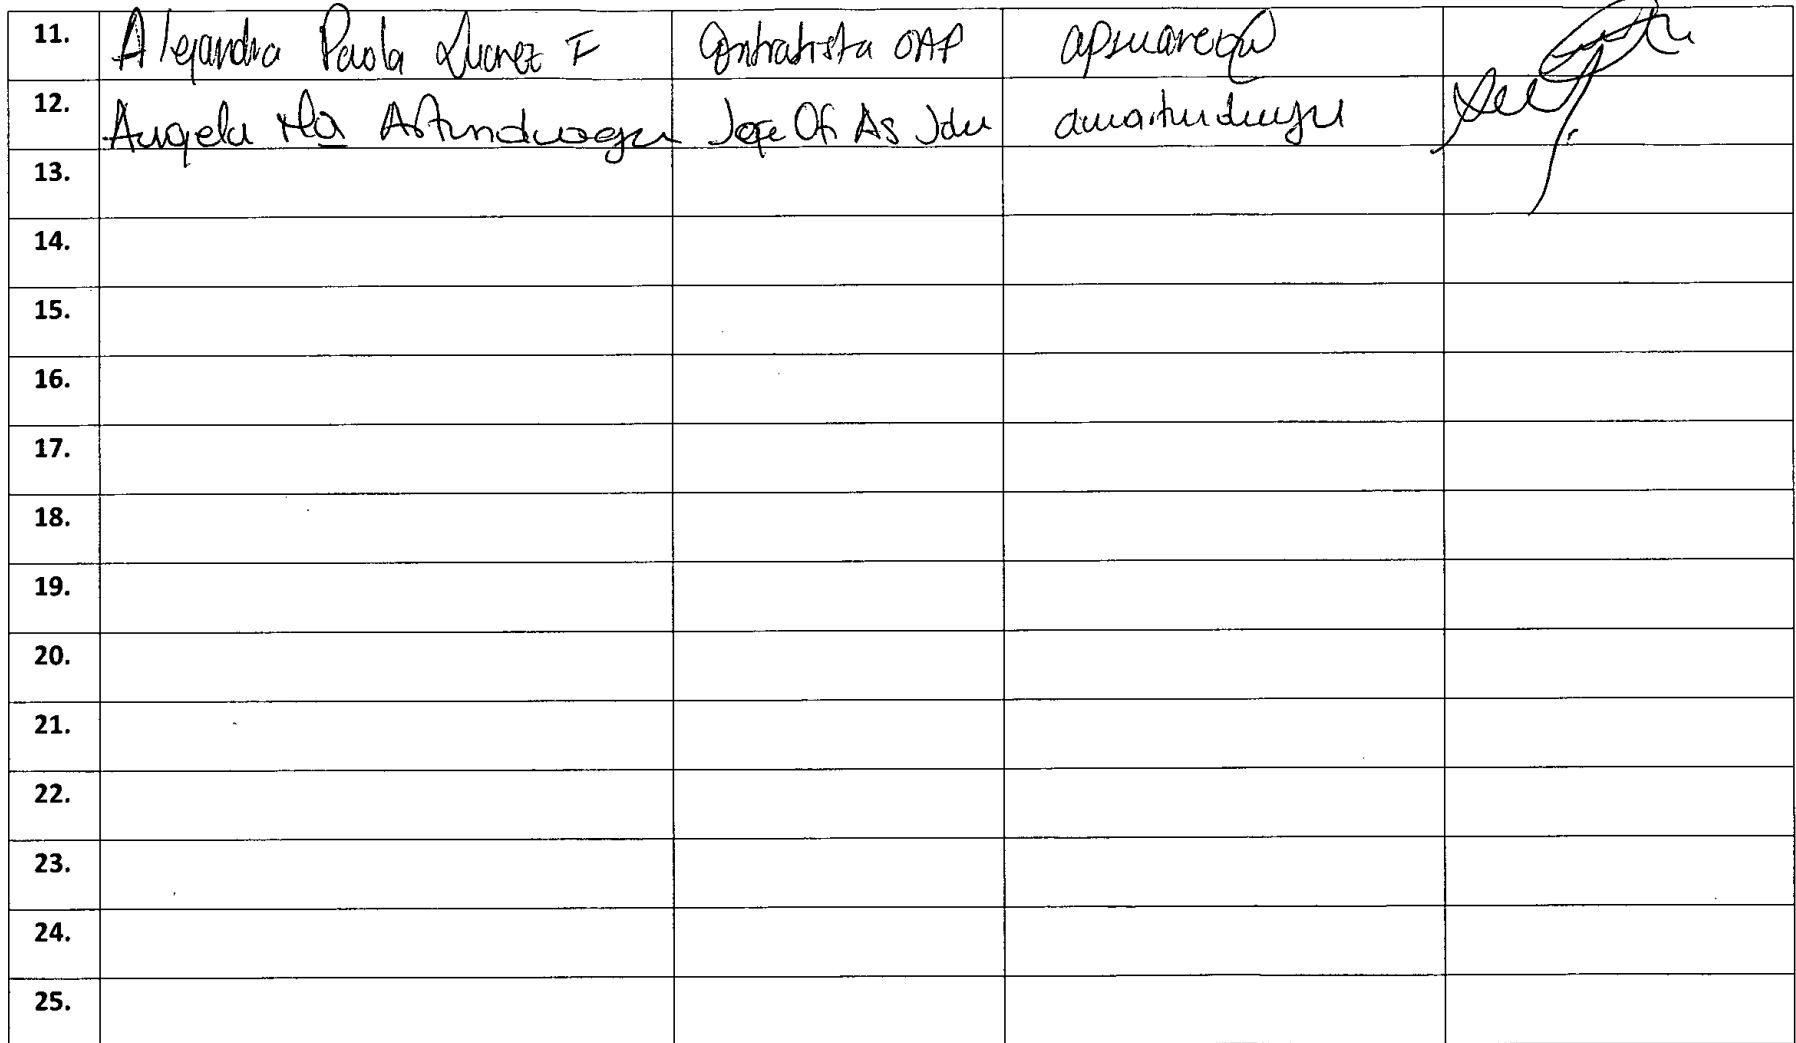 11. Alejandra Paola Suarez F Contratista OAP apsuarez@
12. Angela Ma Artunduaga Jefe Of As Jdu
13.
14.
15.
16.
17.
18.
19.
20.
21.
22.
23.
24.
25.